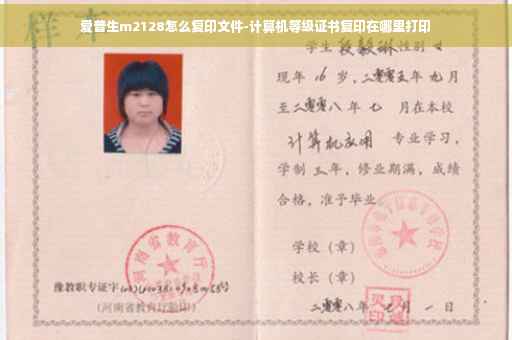 爱普生m2128怎么复印文件-计算机等级证书复印在哪里打印
样本
学生段毅琳性别女
现年16岁，二零零五年九月
至二零零八年七月在本校
计算机应用专业学习，
学制三年，修业期满，成绩
合格，准予毕业。
学校（章）
校长（章）
河南省教育厅
豫教职专证字
（河南省教育厅验印）
二零零八年 月一日